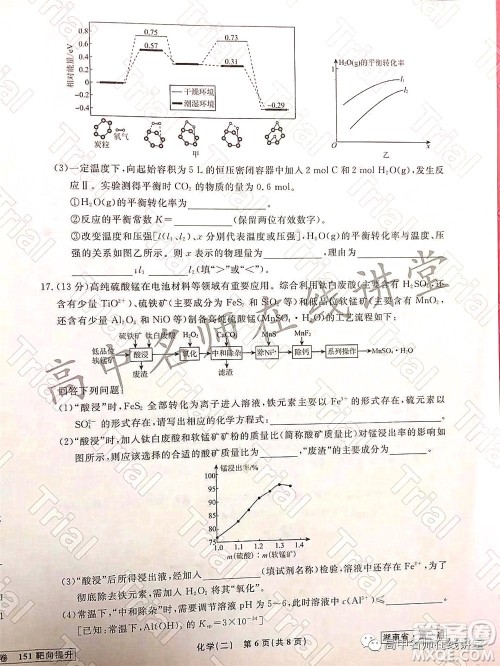 0.8
0.6
0.4
0.2
0
-0.2
-0.4
相对能量/eV
0.75
0.57
0.73
0.31
-0.29
干燥环境
潮湿环境
炭粒
氧气
甲
H₂O(g)的平衡转化率
1
l₁
l₂
0
x
乙
(3)一定温度下,向起始容积为 5 L 的恒压密闭容器中加入 2 mol C 和 2 mol H₂O(g),发生反
应Ⅱ。实验测得平衡时 CO₂ 的物质的量为 0.6 mol。
①H₂O(g)的平衡转化率为
②反应的平衡常数 K= (保留两位有效数字)。
③改变温度和压强[l(l₁、l₂)、x 分别代表温度或压强],H₂O(g)的平衡转化率与温度、压
强的关系如图乙所示,则 x 表示的物理量为 ,理由为
;l₁ l₂(填“>”或“<”)。
17.(13 分)高纯硫酸锰在电池材料等领域有重要作用。综合利用钛白废酸(主要含有 H₂SO₄,还
含有少量 TiO²⁺)、硫铁矿(主要成分为 FeS₂ 和 SiO₂ 等)和低品位软锰矿(主要含有 MnO₂,
还含有少量 Al₂O₃ 和 NiO 等)制备高纯硫酸锰(MnSO₄·H₂O)的工艺流程如下:
硫铁矿 钛白废酸 H₂O₂ CaCO₃ MnS MnF₂
低品位软锰矿 酸浸 氧化 中和除杂 除Ni²⁺ 除钙 系列操作 MnSO₄·H₂O
废渣 滤渣
回答下列问题:
(1)“酸浸”时,FeS₂ 全部转化为离子进入溶液,铁元素主要以 Fe²⁺ 的形式存在,硫元素以
SO₄²⁻ 的形式存在,请写出相应的化学方程式:
(2)“酸浸”时,加入钛白废酸和软锰矿矿粉的质量比(简称酸矿质量比)对锰浸出率的影响如
图所示,则应选择的合适的酸矿质量比为 ,“废渣”的主要成分为
锰浸出率/%
100
95
90
85
80
75
1.0 1.1 1.2 1.3 1.4
m(硫酸):m(软锰矿)
(3)“酸浸”后所得浸出液,经加入 (填试剂名称)验证,溶液中还存在 Fe²⁺,为了
彻底除去铁元素,需加入 H₂O₂ 将其“氧化”。
(4)常温下,“中和除杂”时,需要调节溶液 pH 为 5~6,此时残余的 c(Al³⁺)≤
[已知;常温下,Al(OH)₃ 的 Ksp=3×10⁻³⁴]
化学(二) 第 6 页(共 8 页)
151 靶向提升
湖南省
高中名师在线讲堂
高中名师在线讲堂
Trial